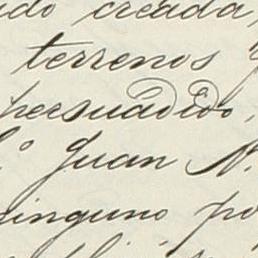 creada,
terrenos
persuadido,
Juan N.
ninguno po